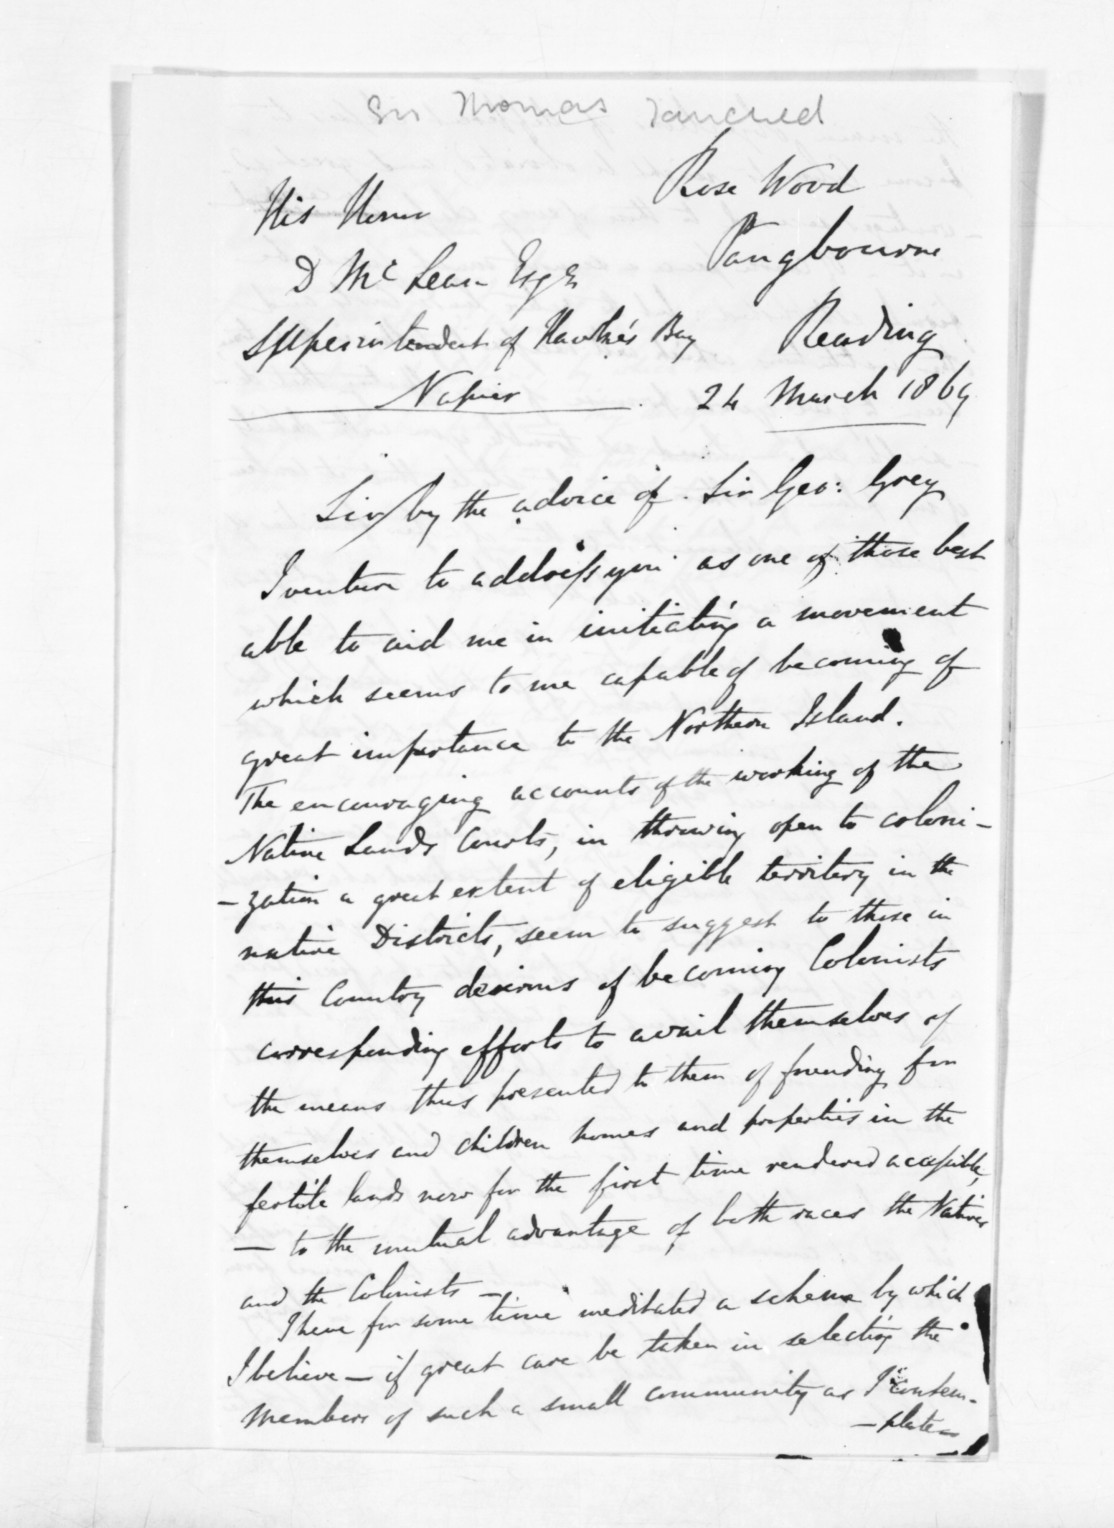 Sir Thomas Tancred
Rose Wood
Pangbourne
Reading
24 March 1869
His Honor
D McLean Esqr
Superintendent of Hawke's Bay
Napier
Sir, by the advice of Sir Geo: Grey
I venture to address you as one of those best
able to aid me in initiating a movement
which seems to me capable of becoming of
great importance to the Northern Island.
The encouraging accounts of the working of the
Native Lands Courts, in throwing open to coloni-
-zation a great extent of eligible territory in the
native Districts, seem to suggest to those in
this Country desirous of becoming Colonists
corresponding efforts to avail themselves of
the means thus presented to them of founding for
themselves and children homes and properties in the
fertile lands now for the first time rendered accessible,
— to the mutual advantage of both races the Natives
and the Colonists —
I have for some time meditated a scheme by which
I believe — if great care be taken in selecting the
members of such a small community as I contem-
-plate —